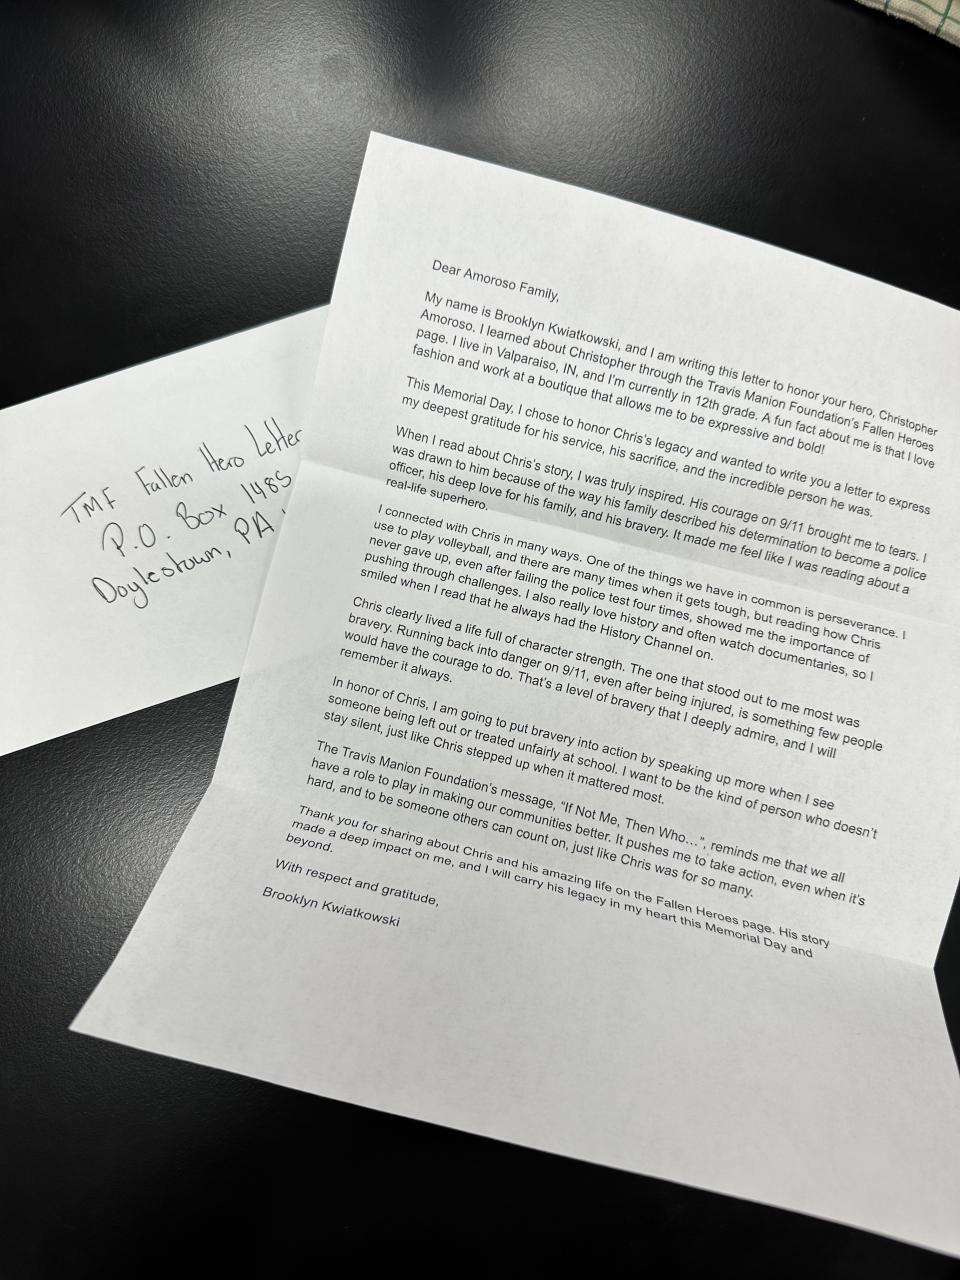 TMF Fallen Hero Letter
P.O. Box 1485
Doylestown, PA
Dear Amoroso Family,
My name is Brooklyn Kwiatkowski, and I am writing this letter to honor your hero, Christopher
Amoroso. I learned about Christopher through the Travis Manion Foundation's Fallen Heroes
page. I live in Valparaiso, IN, and I'm currently in 12th grade. A fun fact about me is that I love
fashion and work at a boutique that allows me to be expressive and bold!
This Memorial Day, I chose to honor Chris's legacy and wanted to write you a letter to express
my deepest gratitude for his service, his sacrifice, and the incredible person he was.
When I read about Chris's story, I was truly inspired. His courage on 9/11 brought me to tears. I
was drawn to him because of the way his family described his determination to become a police
officer, his deep love for his family, and his bravery. It made me feel like I was reading about a
real-life superhero.
I connected with Chris in many ways. One of the things we have in common is perseverance. I
use to play volleyball, and there are many times when it gets tough, but reading how Chris
never gave up, even after failing the police test four times, showed me the importance of
pushing through challenges. I also really love history and often watch documentaries, so I
smiled when I read that he always had the History Channel on.
Chris clearly lived a life full of character strength. The one that stood out to me most was
bravery. Running back into danger on 9/11, even after being injured, is something few people
would have the courage to do. That's a level of bravery that I deeply admire, and I will
remember it always.
In honor of Chris, I am going to put bravery into action by speaking up more when I see
someone being left out or treated unfairly at school. I want to be the kind of person who doesn't
stay silent, just like Chris stepped up when it mattered most.
The Travis Manion Foundation's message, "If Not Me, Then Who...", reminds me that we all
have a role to play in making our communities better. It pushes me to take action, even when it's
hard, and to be someone others can count on, just like Chris was for so many.
Thank you for sharing about Chris and his amazing life on the Fallen Heroes page. His story
made a deep impact on me, and I will carry his legacy in my heart this Memorial Day and
beyond.
With respect and gratitude,
Brooklyn Kwiatkowski